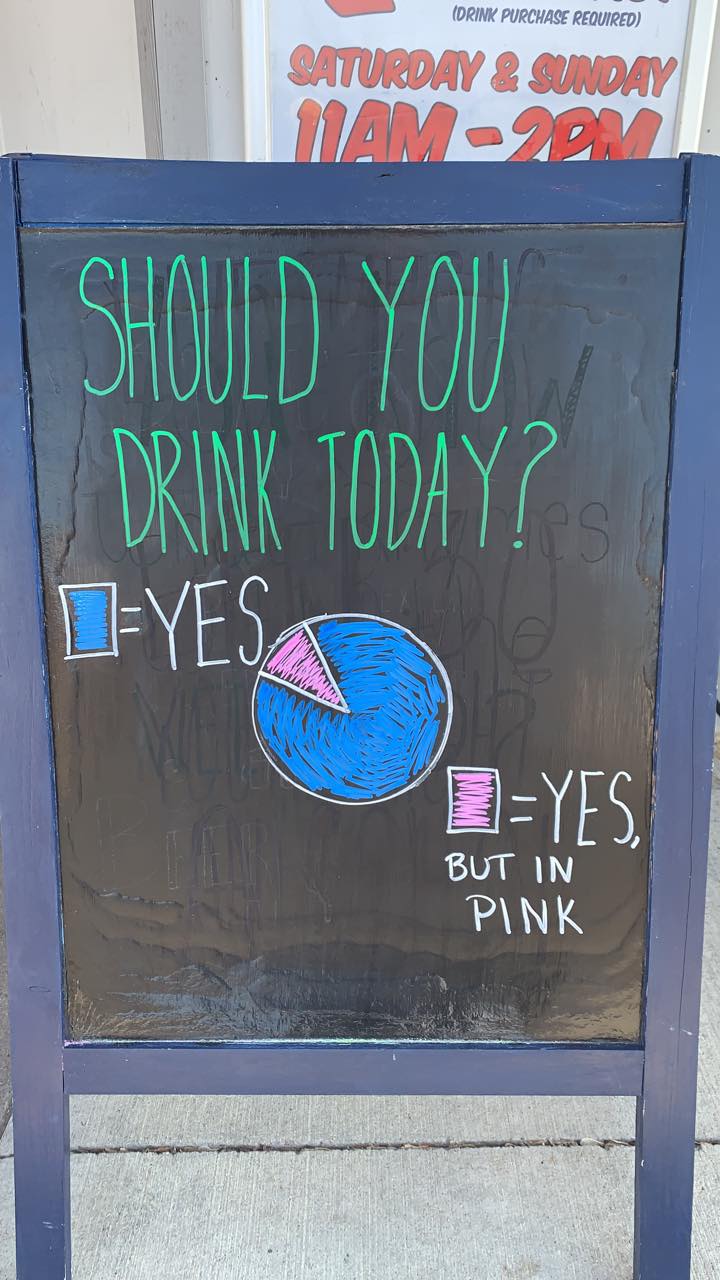 (DRINK PURCHASE REQUIRED)
SATURDAY & SUNDAY
11AM - 2PM
SHOULD YOU
DRINK TODAY?
=YES
=YES,
BUT IN
PINK